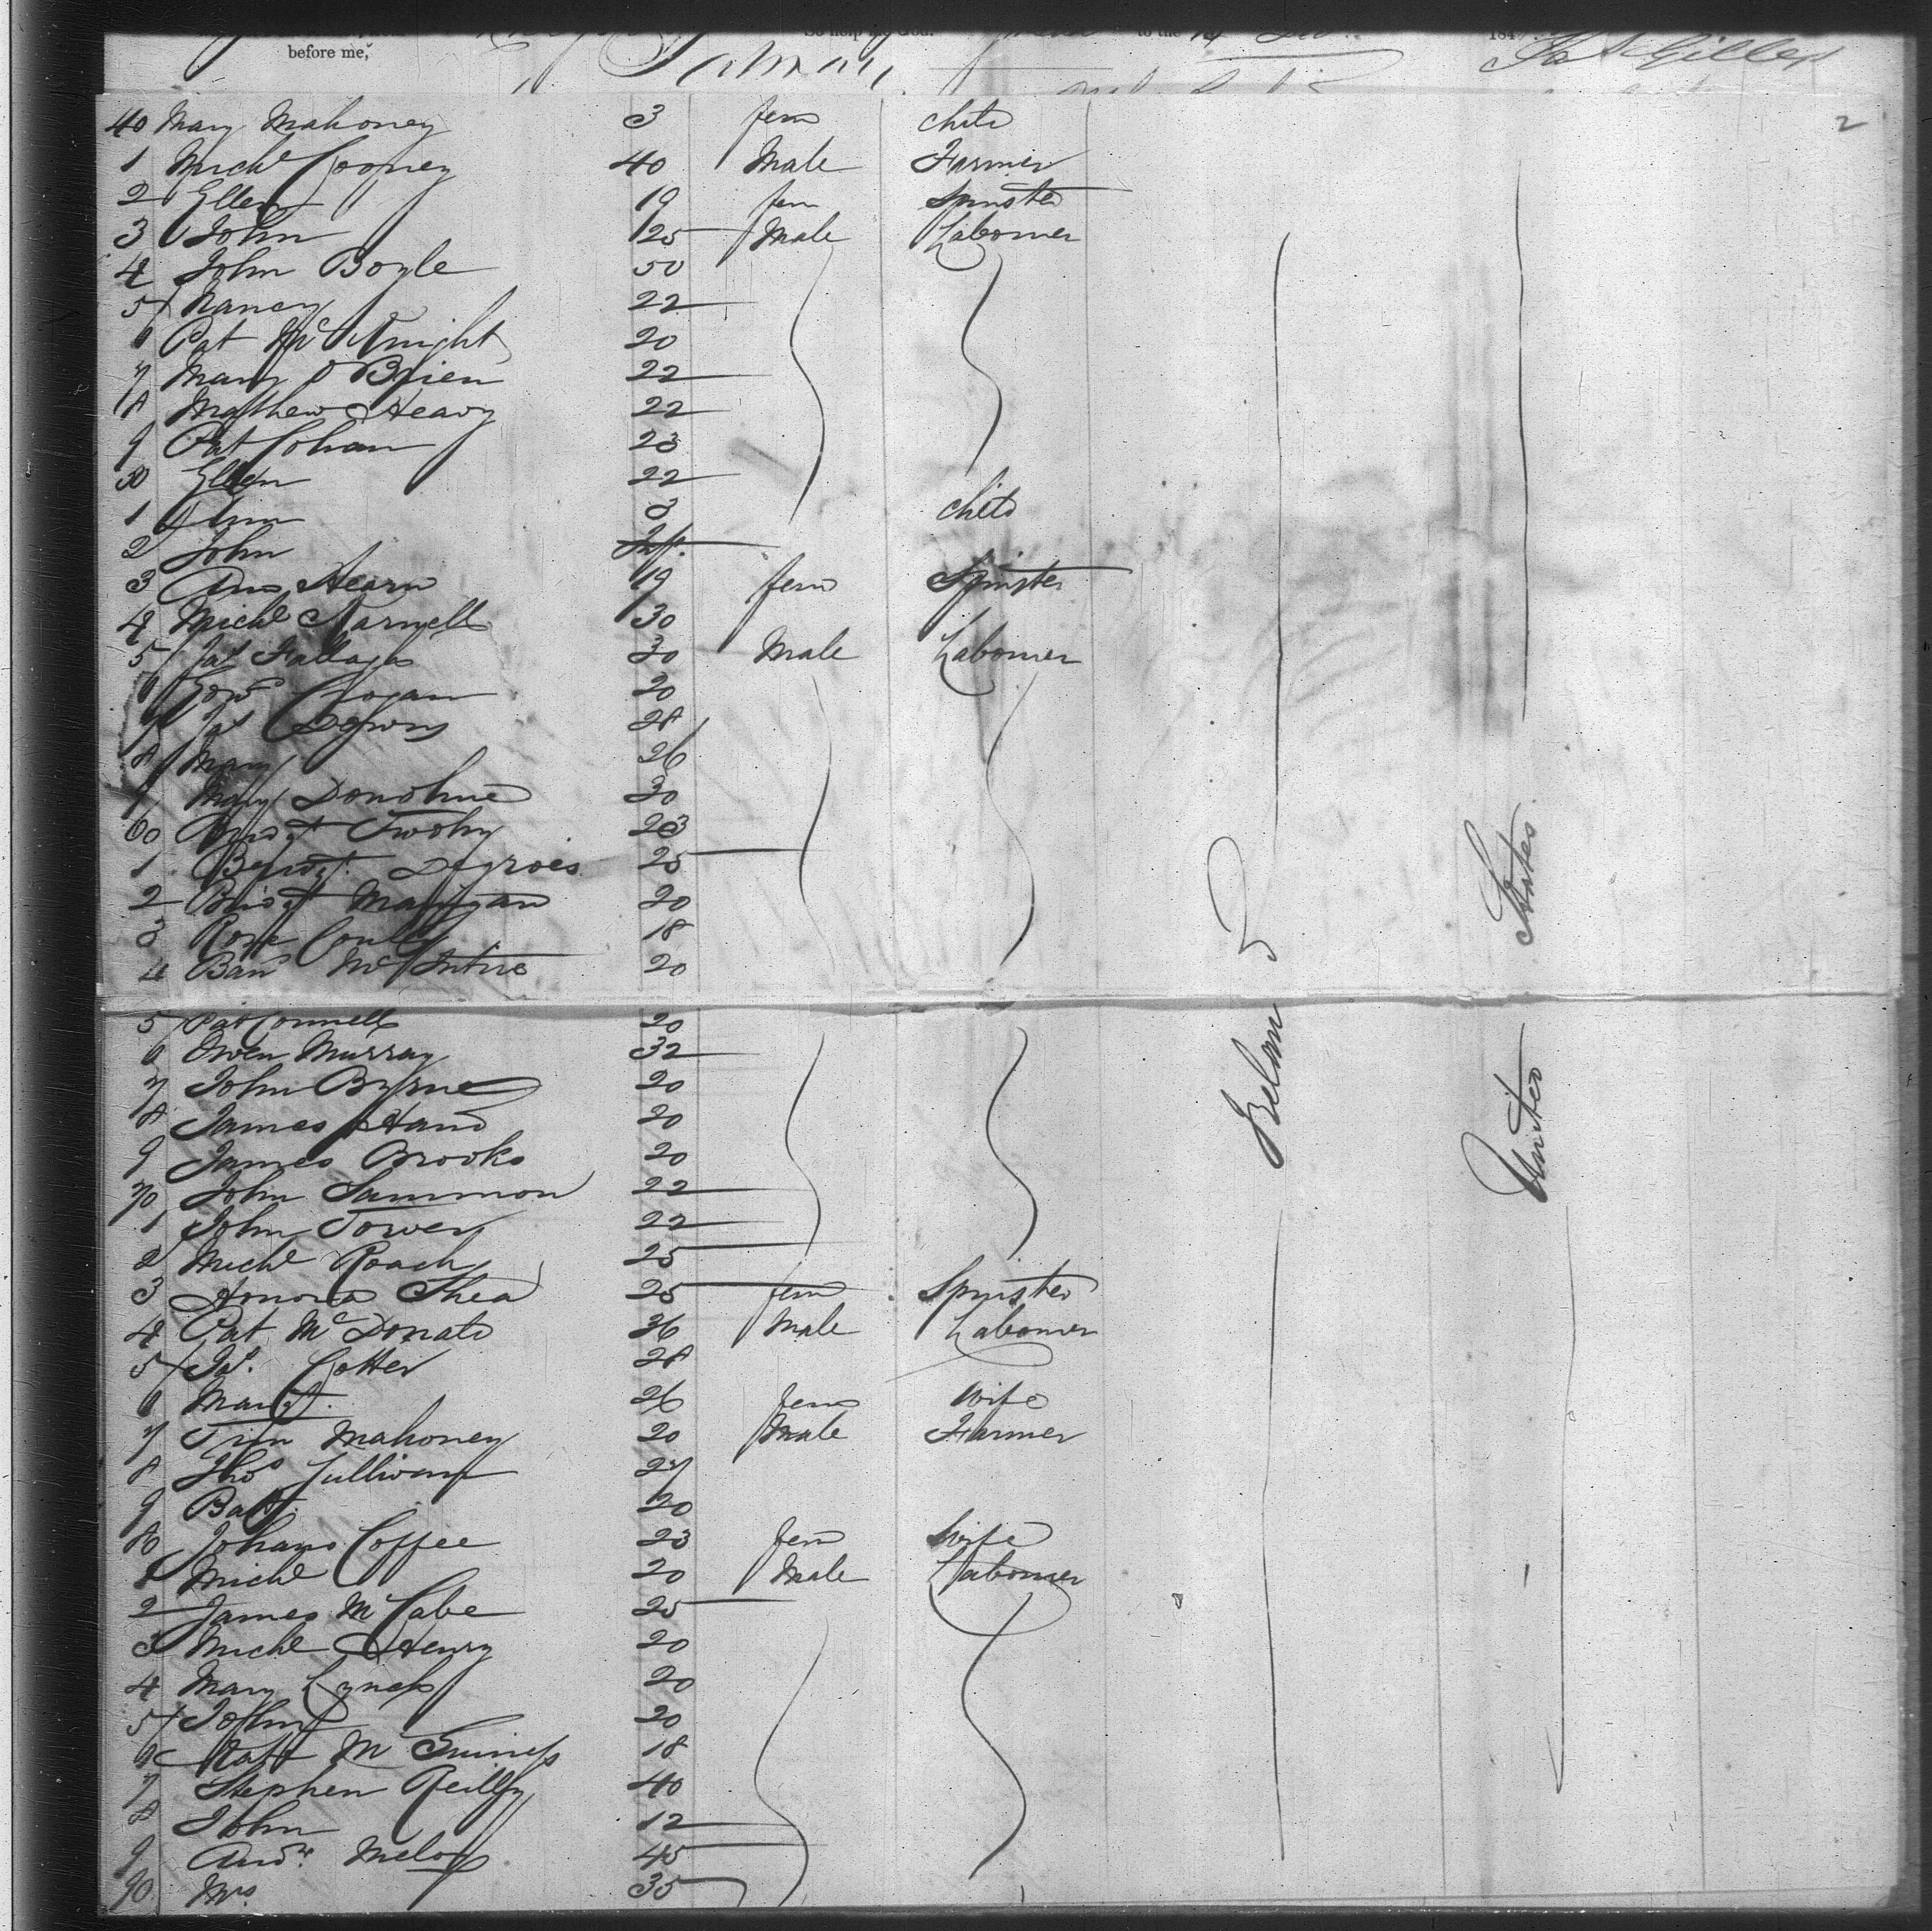 before me, So help me God. to the 184
40 Mary Mahoney 3 fem child 2
1 Michl Cooney 40 Male Farmer
2 Ellen " 19 fem Spinster
3 John 25 Male Labourer
4 John Boyle 50
5 Nancy 22
6 Pat McKnight 20
7 Mary OBrien 22
8 Mathew Heavy 22
9 Pat Cohan 23
50 Ellen 22
1 Ann 3 child
2 John Inft.
3 Ann Hearn 19 fem Spinster
4 Michl 30
5 Jas 30 Male Labourer
6 20
7 Jas Downs 28
8 Mary 26
9 Mary Donohue 30
60 Bridgt Twohy 23
1 Bridgt. 25
2 Bridgt Mangan 20
3 Rose 18
4 McIntire 20
5 Pat Connell 20
6 Owen Murray 32
7 John Byrne 20
8 James Hand 20
9 James Brooks 20
70 John Sammon 22
1 John Tower 22
2 Michl Roach 25
3 Honora Shea 25 fem Spinster
4 Pat McDonald 36 Male Labourer
5 Jas. Cotter 28
6 Margt. 26 fem wife
7 Tim Mahoney 20 Male Farmer
8 Thos Sullivan 27
9 Batt. 20
80 Johana Coffee 23 fem wife
1 Michl 20 Male Labourer
2 James McCabe 25
3 Michl Henry 20
4 Mary Lynch 20
5 John 20
6 McGuiness 18
7 Stephen Reilly 40
8 John 12
9 Andw. Meloy 45
90 Mrs 35
United States